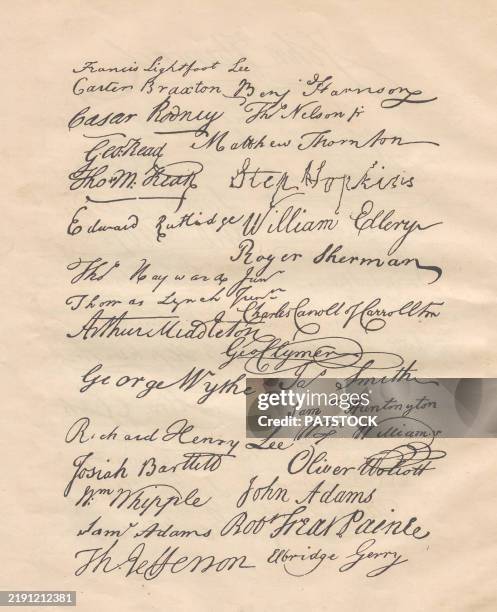 Francis Lightfoot Lee
Carter Braxton Benj Harrison
Cæsar Rodney Thos Nelson jr
Geo. Read Matthew Thornton
Tho M. Kean Step Hopkins
Edward Rutlidge William Ellery
Roger Sherman
Thos Hayward Junr
Thomas Lynch Junr Charles Carroll of Carrollton
Arthur Middleton
Geo Clymer
George Wythe Jas Smith
gettyimages
Credit: PATSTOCK
Sam Huntington
Richard Henry Lee Wm Williams
Josiah Bartlett Oliver Wolcott
Wm Whipple John Adams
Saml Adams Robt Treat Paine
Th Jefferson Elbridge Gerry
2191212381